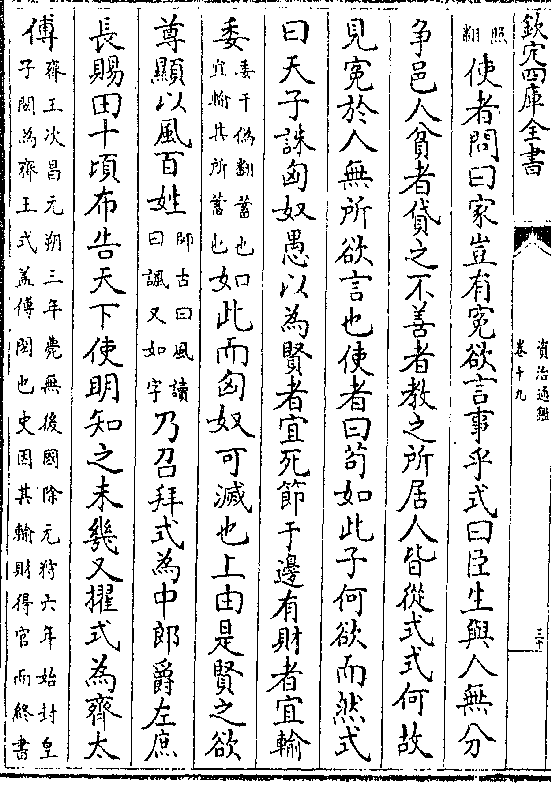 欽定四庫全書
資治通鑑
卷十九
三十
照翻使者問曰家豈有寃欲言事乎式曰臣生與人無分
争邑人貧者貸之不善者教之所居人皆從式式何故
見寃於人無所欲言也使者曰苟如此子何欲而然式
曰天子誅匈奴愚以為賢者宜死節于邊有財者宜輸
委委于偽翻蓄也宜輸其所蓄也如此而匈奴可滅也上由是賢之欲
尊顯以風百姓師古曰風讀曰諷又如字乃召拜式為中郎爵左庶
長賜田十頃布告天下使明知之未幾又擢式為齊太
傅齊王次昌元朔三年薨無後國除元狩六年始封皇子閎為齊王式盖傅閎也史因其輸財得官而終書